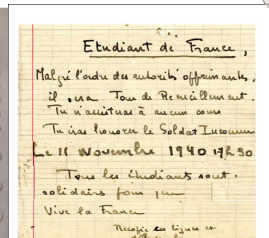 Etudiant de France,
Malgré l'ordre des autorités opprimantes,
il aura Jour de Recueillement.
Tu n'assisteras à aucun cours
Tu iras honorer le Soldat Inconnu
Le 11 Novembre 1940 17h30
Tous les étudiants sont
solidaires pour que
Vive la France
Recopie ces lignes et